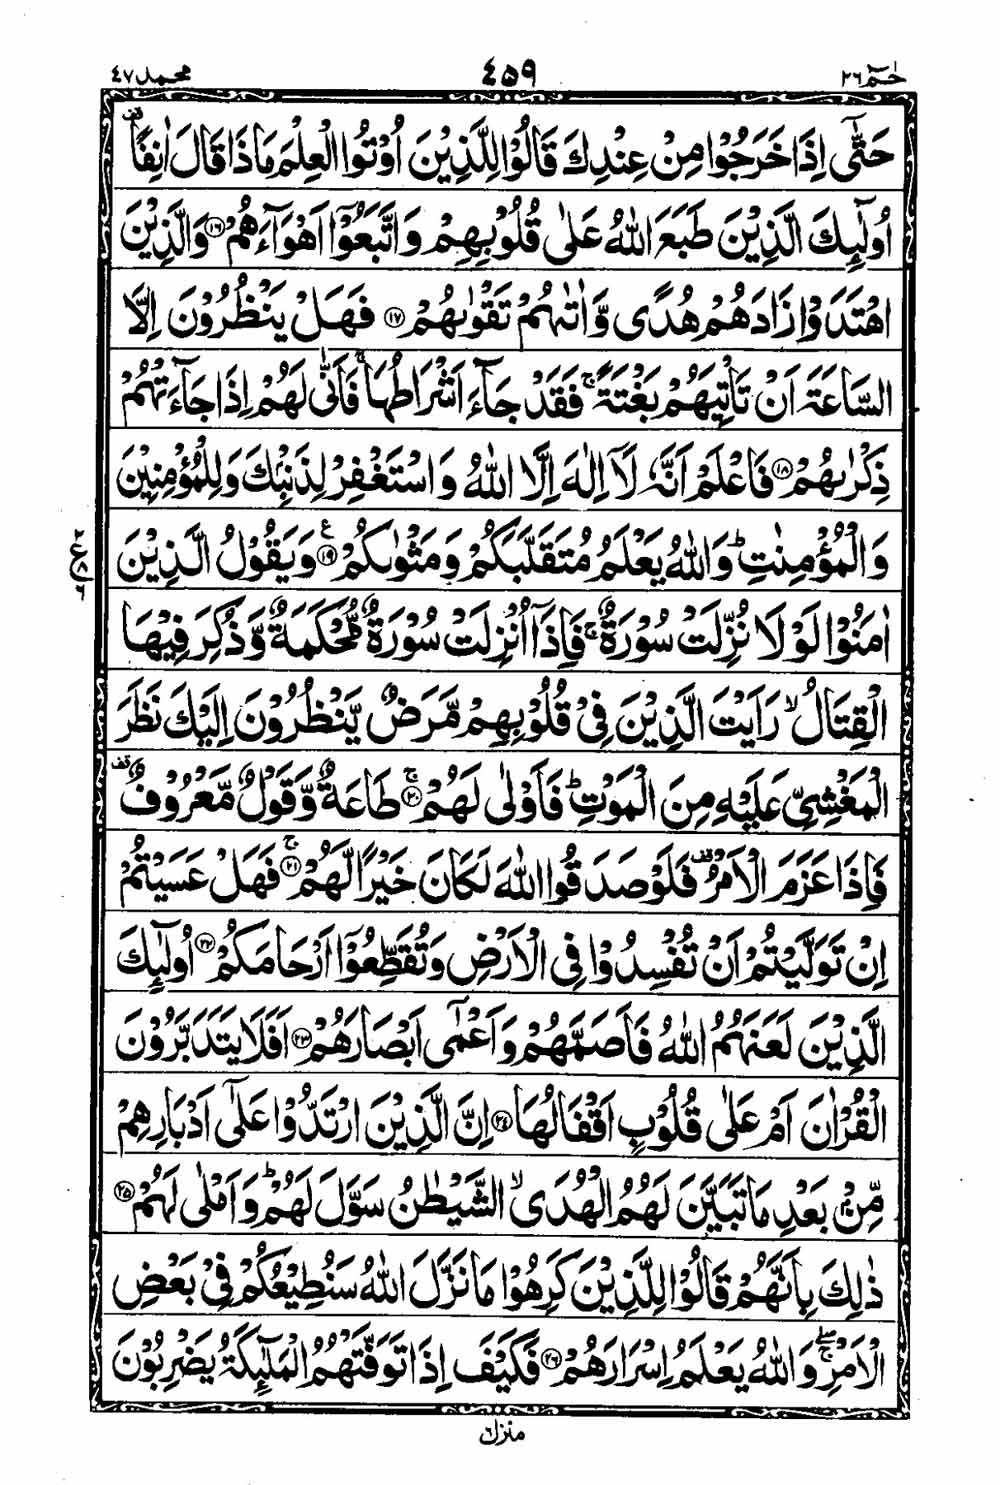 حٰمٓ ٢٦
٤٥٩
محمد ٤٧
حَتّٰۤى اِذَا خَرَجُوْا مِنْ عِنْدِكَ قَالُوْا لِلَّذِیْنَ اُوْتُوا الْعِلْمَ مَاذَا قَالَ اٰنِفًا ۫
اُولٰٓىِٕكَ الَّذِیْنَ طَبَعَ اللّٰهُ عَلٰى قُلُوْبِهِمْ وَ اتَّبَعُوْۤا اَهْوَآءَهُمْ ﴿١٦﴾ وَ الَّذِیْنَ
اهْتَدَوْا زَادَهُمْ هُدًى وَّ اٰتٰىهُمْ تَقْوٰىهُمْ ﴿١٧﴾ فَهَلْ یَنْظُرُوْنَ اِلَّا
السَّاعَةَ اَنْ تَاْتِیَهُمْ بَغْتَةً ۚ فَقَدْ جَآءَ اَشْرَاطُهَا ۚ فَاَنّٰى لَهُمْ اِذَا جَآءَتْهُمْ
ذِكْرٰىهُمْ ﴿١٨﴾ فَاعْلَمْ اَنَّهٗ لَاۤ اِلٰهَ اِلَّا اللّٰهُ وَ اسْتَغْفِرْ لِذَنْۢبِكَ وَ لِلْمُؤْمِنِیْنَ
وَ الْمُؤْمِنٰتِ ؕ وَ اللّٰهُ یَعْلَمُ مُتَقَلَّبَكُمْ وَ مَثْوٰىكُمْ ﴿١٩﴾ ع وَ یَقُوْلُ الَّذِیْنَ
اٰمَنُوْا لَوْ لَا نُزِّلَتْ سُوْرَةٌ ۚ فَاِذَاۤ اُنْزِلَتْ سُوْرَةٌ مُّحْكَمَةٌ وَّ ذُكِرَ فِیْهَا
الْقِتَالُ ۙ رَاَیْتَ الَّذِیْنَ فِیْ قُلُوْبِهِمْ مَّرَضٌ یَّنْظُرُوْنَ اِلَیْكَ نَظَرَ
الْمَغْشِیِّ عَلَیْهِ مِنَ الْمَوْتِ ؕ فَاَوْلٰى لَهُمْ ﴿٢٠﴾ ۚ طَاعَةٌ وَّ قَوْلٌ مَّعْرُوْفٌ ۫
فَاِذَا عَزَمَ الْاَمْرُ ۫ فَلَوْ صَدَقُوا اللّٰهَ لَكَانَ خَیْرًا لَّهُمْ ﴿٢١﴾ ۚ فَهَلْ عَسَیْتُمْ
اِنْ تَوَلَّیْتُمْ اَنْ تُفْسِدُوْا فِی الْاَرْضِ وَ تُقَطِّعُوْۤا اَرْحَامَكُمْ ﴿٢٢﴾ اُولٰٓىِٕكَ
الَّذِیْنَ لَعَنَهُمُ اللّٰهُ فَاَصَمَّهُمْ وَ اَعْمٰۤى اَبْصَارَهُمْ ﴿٢٣﴾ اَفَلَا یَتَدَبَّرُوْنَ
الْقُرْاٰنَ اَمْ عَلٰى قُلُوْبٍ اَقْفَالُهَا ﴿٢٤﴾ اِنَّ الَّذِیْنَ ارْتَدُّوْا عَلٰۤى اَدْبَارِهِمْ
مِّنْۢ بَعْدِ مَا تَبَیَّنَ لَهُمُ الْهُدَى ۙ الشَّیْطٰنُ سَوَّلَ لَهُمْ ؕ وَ اَمْلٰى لَهُمْ ﴿٢٥﴾
ذٰلِكَ بِاَنَّهُمْ قَالُوْا لِلَّذِیْنَ كَرِهُوْا مَا نَزَّلَ اللّٰهُ سَنُطِیْعُكُمْ فِیْ بَعْضِ
الْاَمْرِ ۖۚ وَ اللّٰهُ یَعْلَمُ اِسْرَارَهُمْ ﴿٢٦﴾ فَكَیْفَ اِذَا تَوَفَّتْهُمُ الْمَلٰٓىِٕكَةُ یَضْرِبُوْنَ
٢
ع ٨
٦
منزل ٦